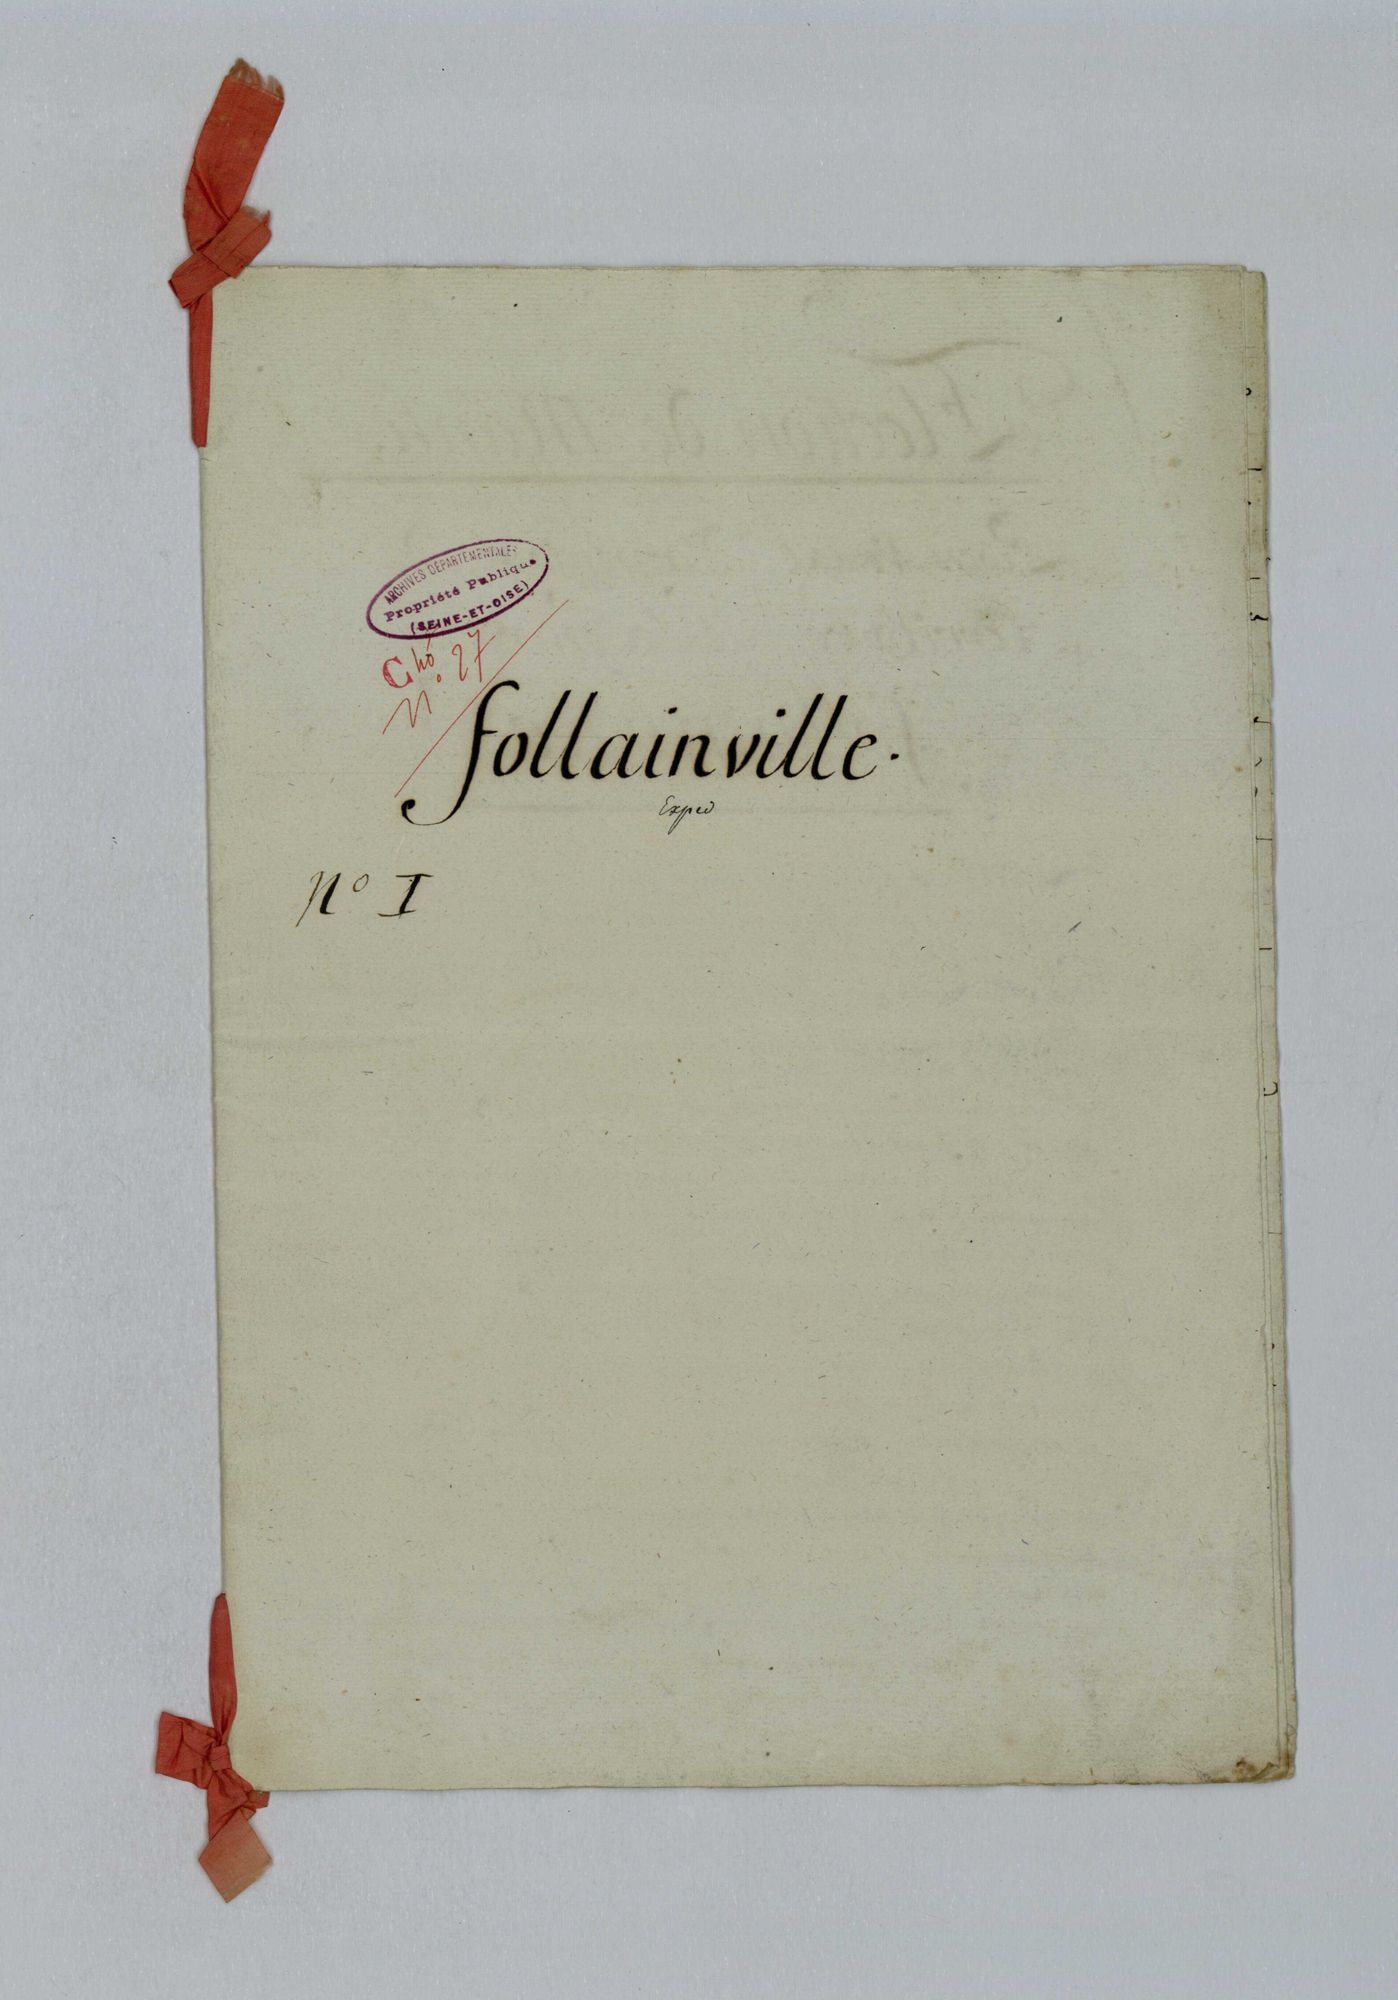 ARCHIVES DÉPARTEMENTALES
Propriété Publique
(SEINE-ET-OISE)
C
N° 27
follainville.
Exped
N° I